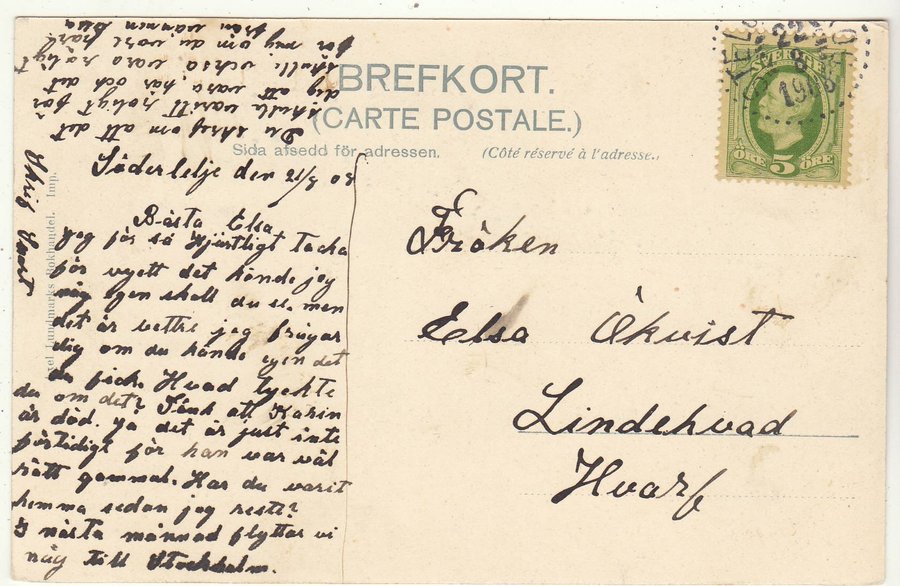 BREFKORT.
(CARTE POSTALE.)
Sida afsedd för adressen. (Côté réservé à l'adresse.)
SVERIGE
22
8
ÖRE 5 ÖRE
Fröken
Elsa Ökvist
Lindehvad
Hvarf
Södertelje den 21/8 08
Bästa Elsa
Jag får så hjärtligt tacka
för vyett det kände jag
någ egen skall du se. men
det är bettre jag frågar
dig om du kände egen det
du fick. Hvad tyckte
du om det? Tänk att Karin
är död. ja det är just inte
förtidigt för han var väl
rätt gammal. Har du varit
hemma sedan jag reste?
I nästa månnad flyttar vi
någ till Stockholm.
Du skref om att det
skulle varitt roligt för
dig att vara här och det
skulle också vara roligt
för mig om du vore här.
från vännen Elsa
Skrif snart
Lundmarks Bokhandel. Imp.